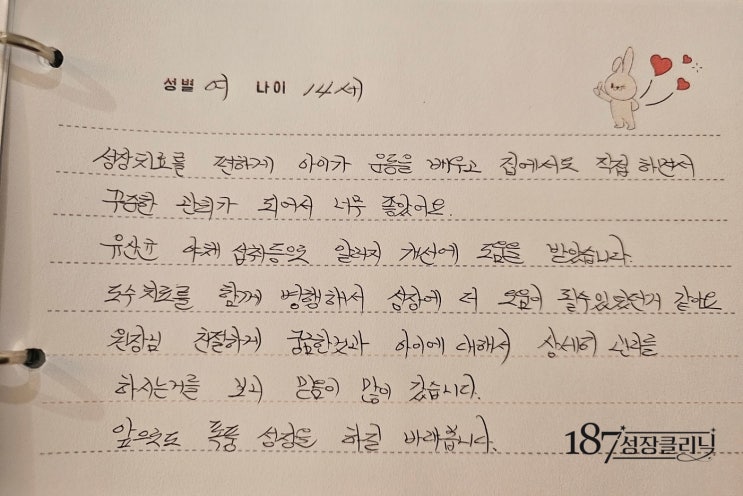 성별 여 나이 14세
성장치료를 편하게 아이가 운동을 배우고 집에서도 직접 하면서
꾸준한 관리가 되어서 너무 좋았어요.
유산균 야채 섭취등으로 알러지 개선에 도움을 받았습니다.
도수치료를 함께 병행해서 성장에 더 도움이 될수있었던거 같아요
원장님 친절하게 궁금한것과 아이에 대해서 상세히
하시는거를 보고 믿음이 많이 갔습니다.
앞으로도 폭풍 성장을 하길 바래봅니다.
187 성장클리닉